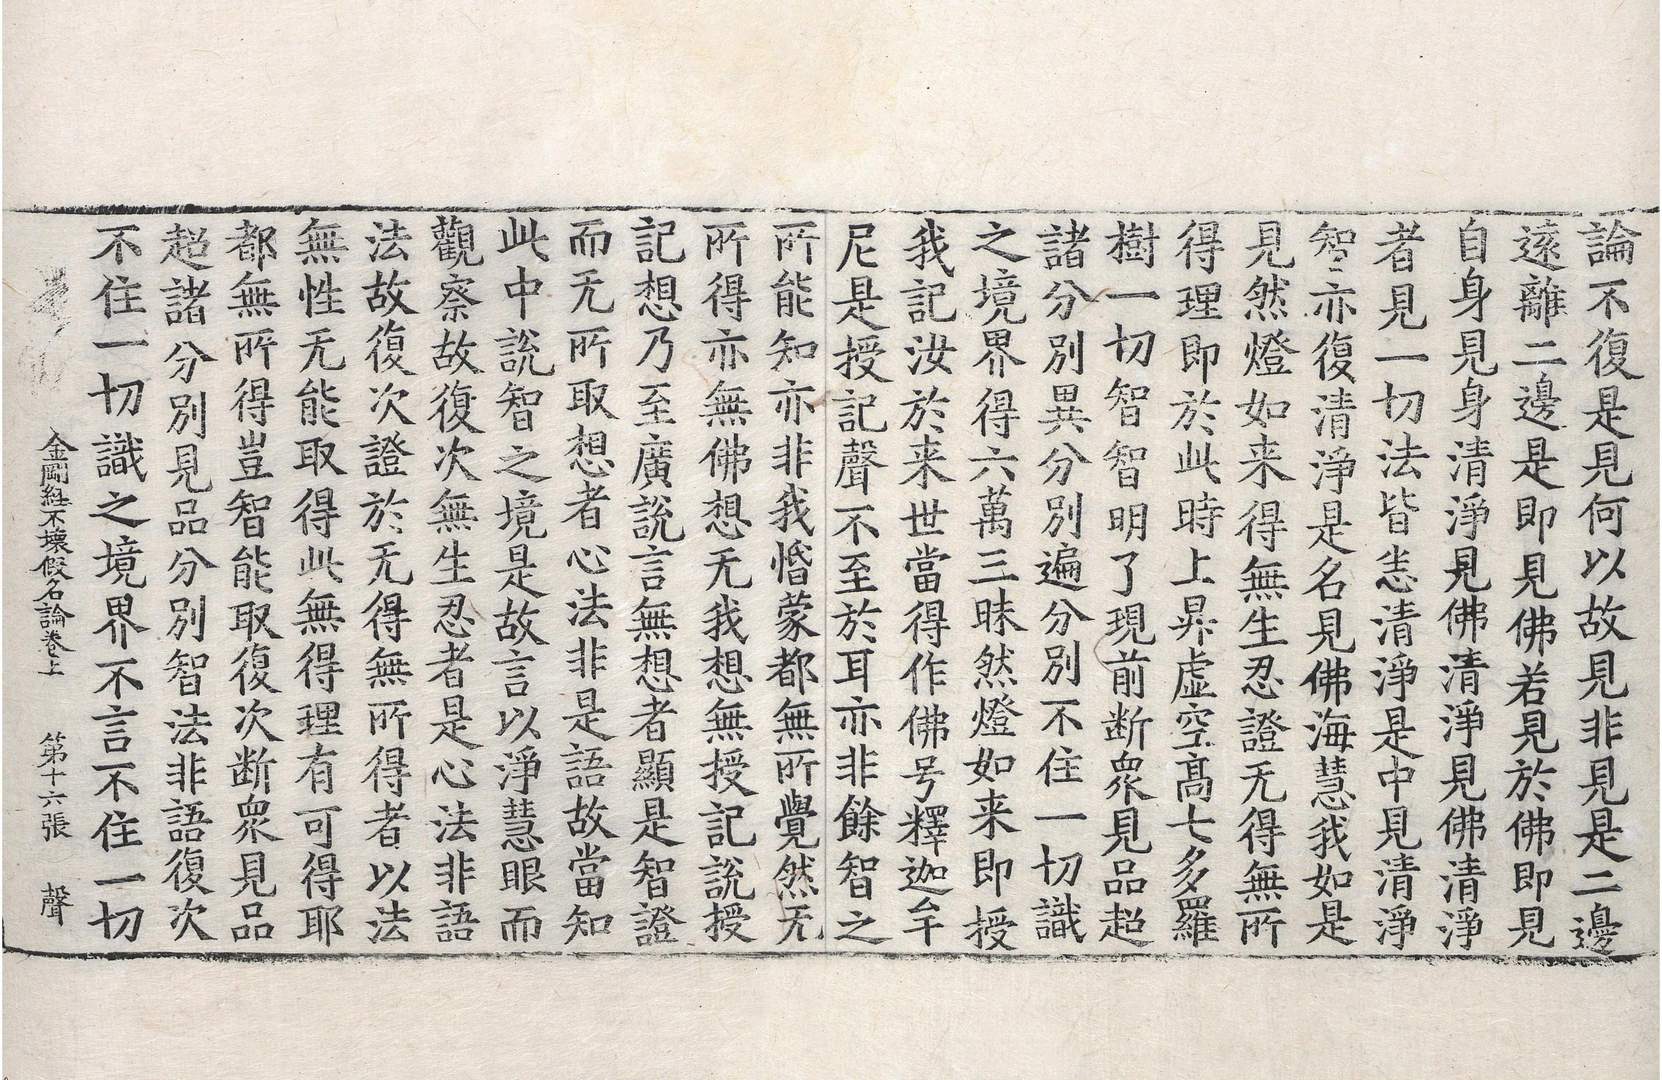 論不復是見何以故見非見是二邊
遠離二邊是即見佛若見於佛即見
自身見身清淨見佛清淨見佛清淨
者見一切法皆悉清淨是中見清淨
智亦復清淨是名見佛海慧我如是
見然燈如来得無生忍證无得無所
得理即於此時上昇虛空高七多羅
樹一切智智明了現前断衆見品超
諸分別異分別遍分別不住一切識
之境界得六萬三昧然燈如来即授
我記汝於来世當得作佛号釋迦牟
尼是授記聲不至於耳亦非餘智之
所能知亦非我惛蒙都無所覺然无
所得亦無佛想无我想無授記說授
記想乃至廣說言無想者顯是智證
而无所取想者心法非是語故當知
此中說智之境是故言以淨慧眼而
觀察故復次無生忍者是心法非語
法故復次證於无得無所得者以法
無性无能取得此無得理有可得耶
都無所得豈智能取復次断衆見品
超諸分別見品分別智法非語復次
不住一切識之境界不言不住一切
金剛経不壞假名論卷上 第十六張 聲